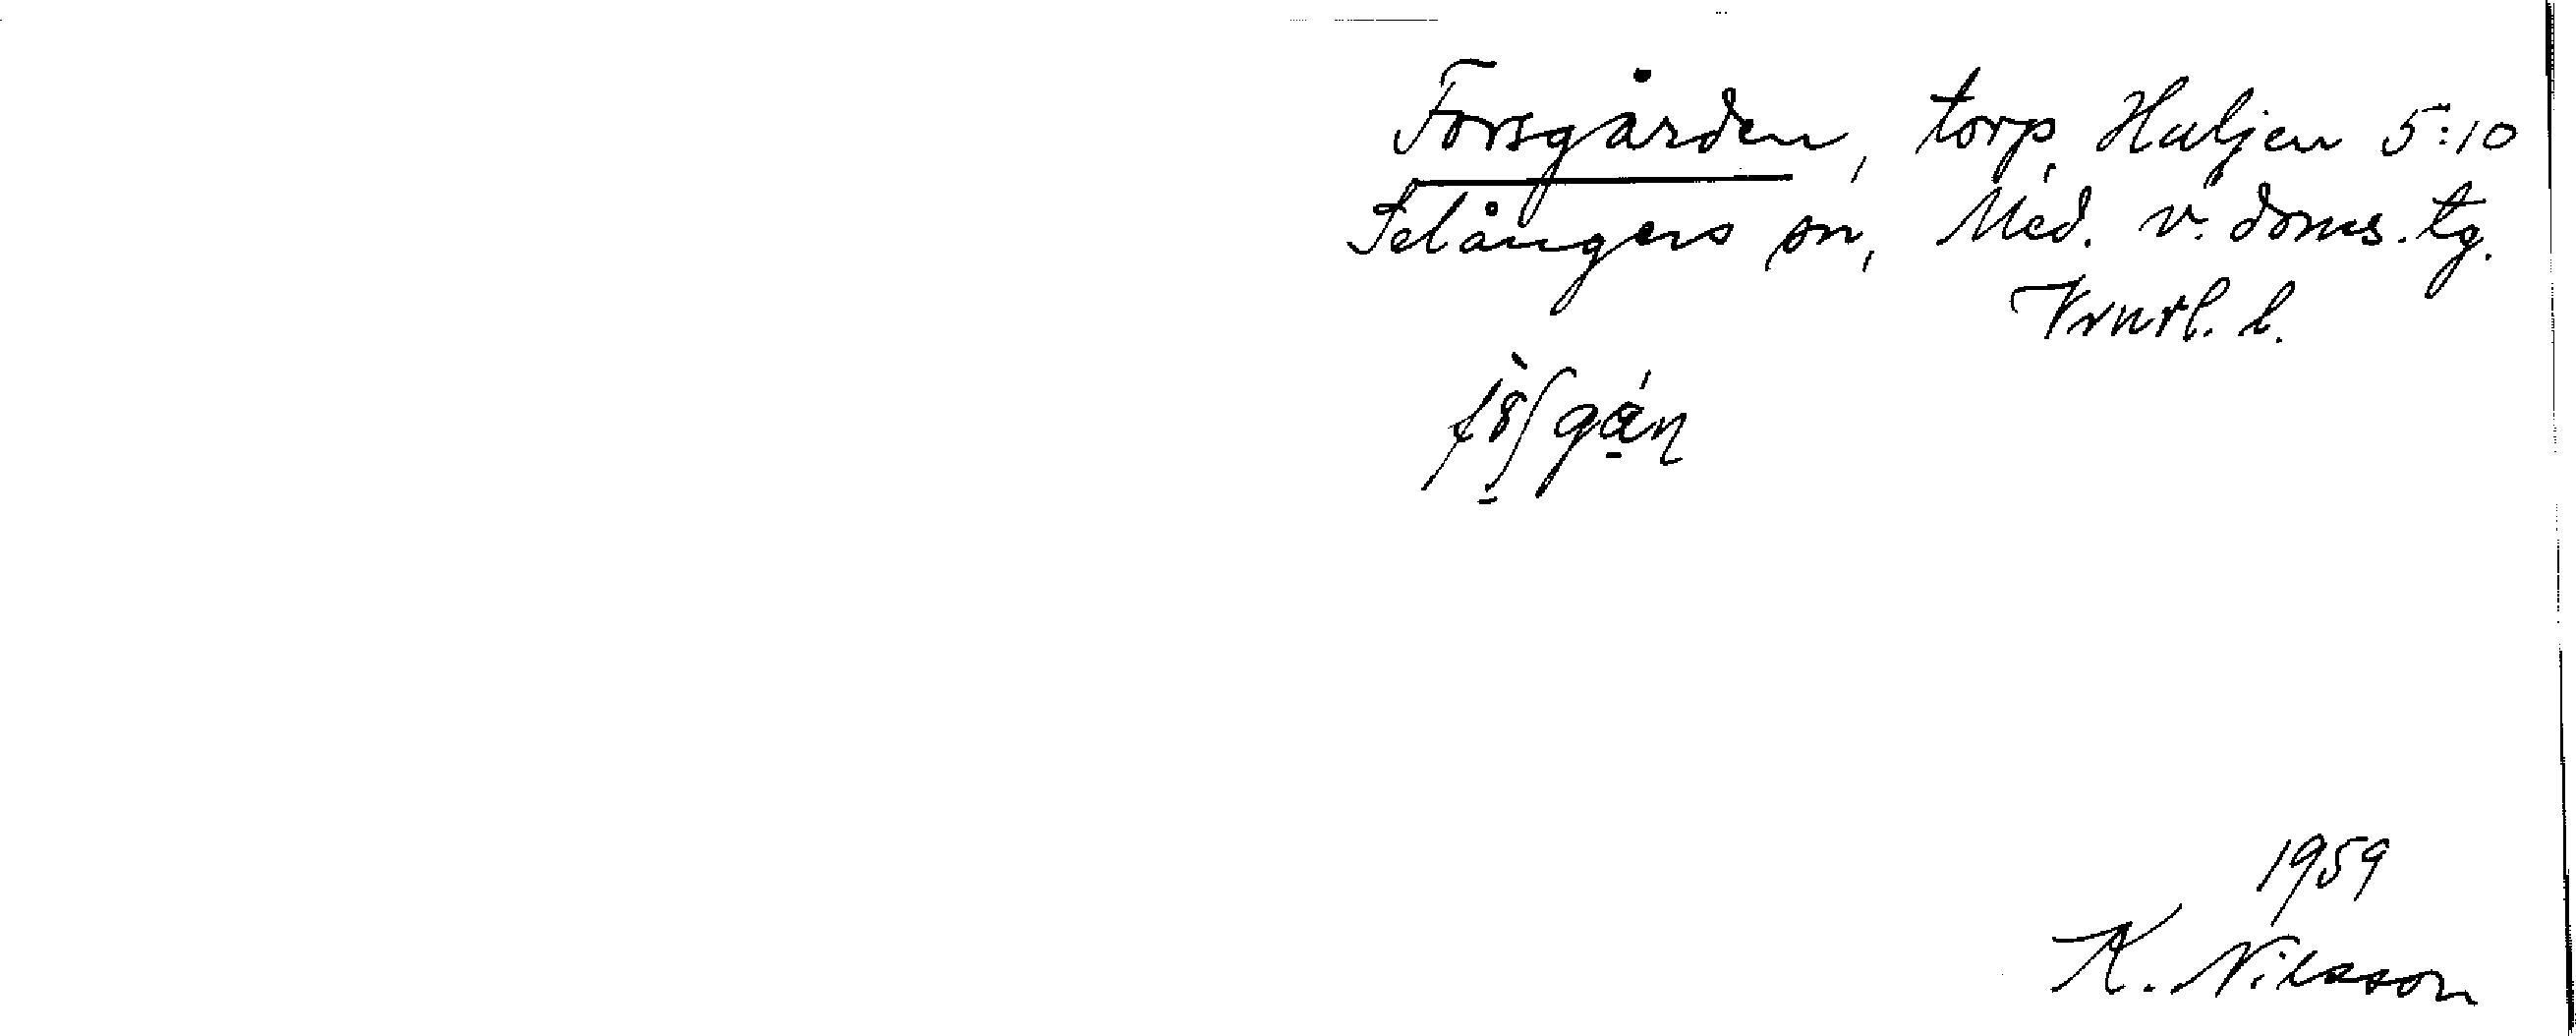 Forsgården, torp, Huljen 5:10
Selångers sn, Med. v. doms. tg.
Vrnrl. l.
1959
K. Nilsson